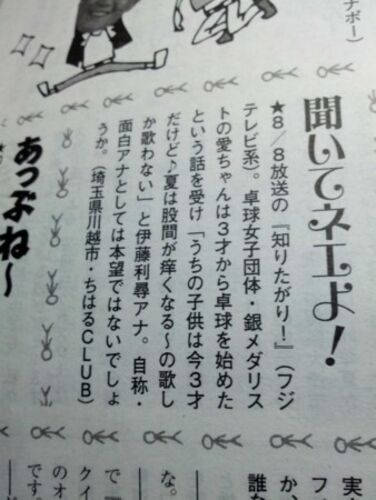 ナボー）
聞いてネエよ！
★8／8放送の『知りたがり！』（フジ
テレビ系）。卓球女子団体・銀メダリス
トの愛ちゃんは3才から卓球を始めた
という話を受け「うちの子供は今3才
だけど♪夏は股間が痒くなる〜の歌し
か歌わない」と伊藤利尋アナ。自称・
面白アナとしては本望ではないでしょ
うか。（埼玉県川越市・ちはるCLUB）
あっぶね〜
実
フ
か
誰
な。
で『
クイ
のオ
です